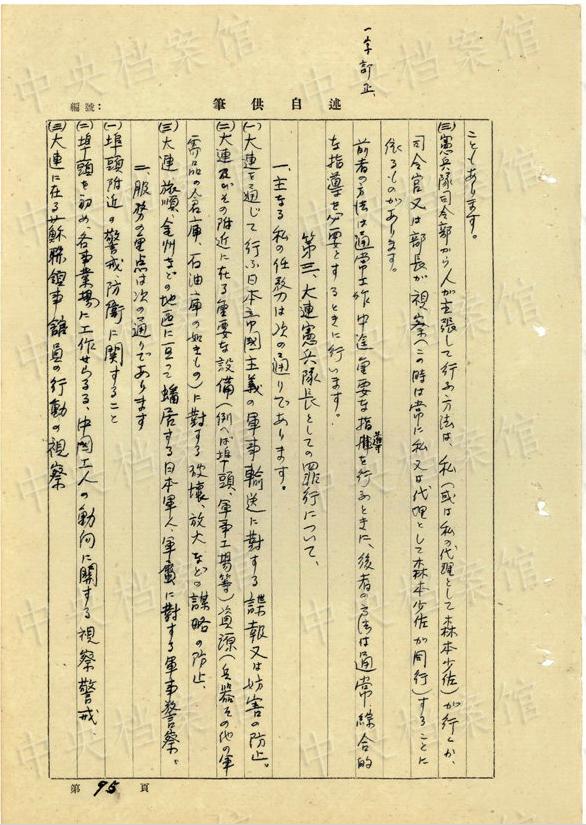 一字訂正
述自供筆
編號:
こともあります。
(三)憲兵隊司令部から人が主張して行ふ方法は、私(或は私の代理として森本少佐)が行くか、
司令官又は部長が視察(この時は常に私又は代理として森本少佐が同行)することに
依るものがあります。
前者の方法は通常工作中途重要な指導を行ふときに、後者の方法は通常綜合的
な指導を必要とするときに行います。
第三、大連憲兵隊長としての罪行について、
一、主なる私の任務は次の通りであります。
(一)大連を通じて行ふ日本帝國主義の軍事輸送に對する諜報又は妨害の防止。
(二)大連及びその附近に在る重要な設備(例へば埠頭、軍事工場等)資源(兵器その他の軍
需品の入倉庫、石油庫の如きもの)に對する破壊、放火などの謀略の防止、
(三)大連、旅順、金州などの地區に亘って蟠居する日本軍人、軍屬に對する軍事警察。
二、服務の重点は次の通りであります
(一)埠頭附近の警戒防衛に關すること
(二)埠頭を初め、各事業場に工作せらるる、中國工人の動向に關する視察警戒、
(三)大連に在る蘇聯領事館員の行動の視察
第 95 頁
中央档案馆